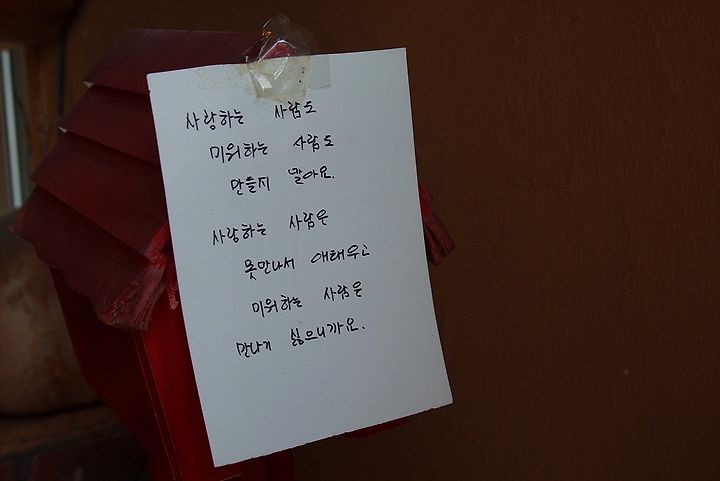 사랑하는 사람도
미워하는 사람도
만들지 말아요.
사랑하는 사람은
못만나서 애태우고
미워하는 사람은
만나기 싫으니까요.